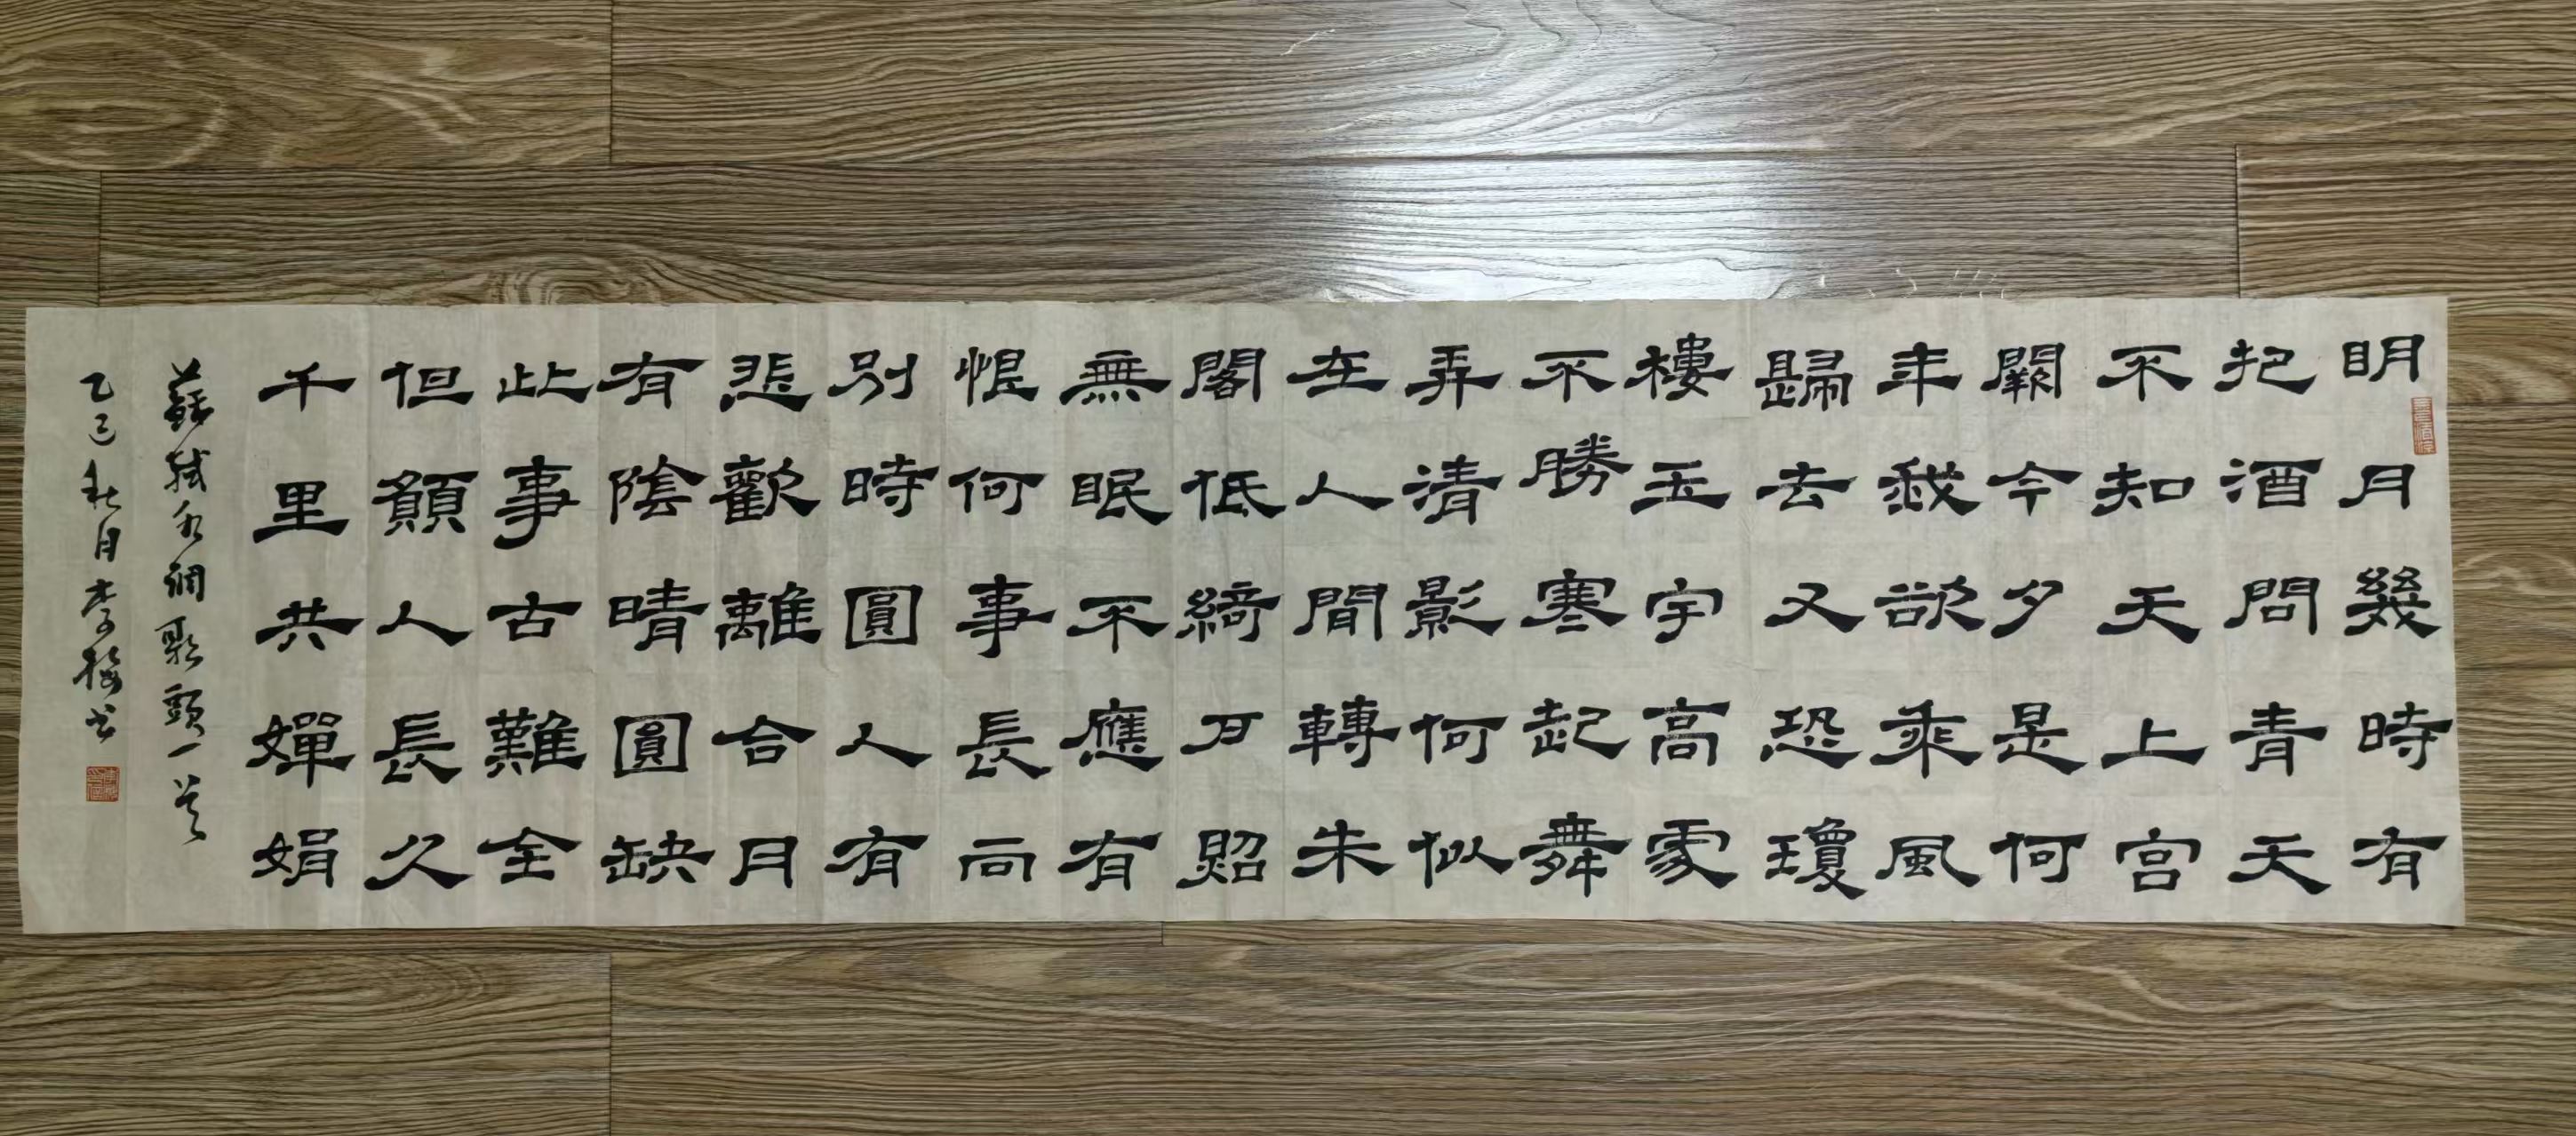 明月幾時有
把酒問青天
不知天上宫
闕今夕是何
年我欲乘風
歸去又恐瓊
樓玉宇高處
不勝寒起舞
弄清影何似
在人間轉朱
閣低綺户照
無眠不應有
恨何事長向
别時圓人有
悲歡離合月
有陰晴圓缺
此事古難全
但願人長久
千里共嬋娟
蘇軾水調歌頭一首
乙巳秋月李梅书